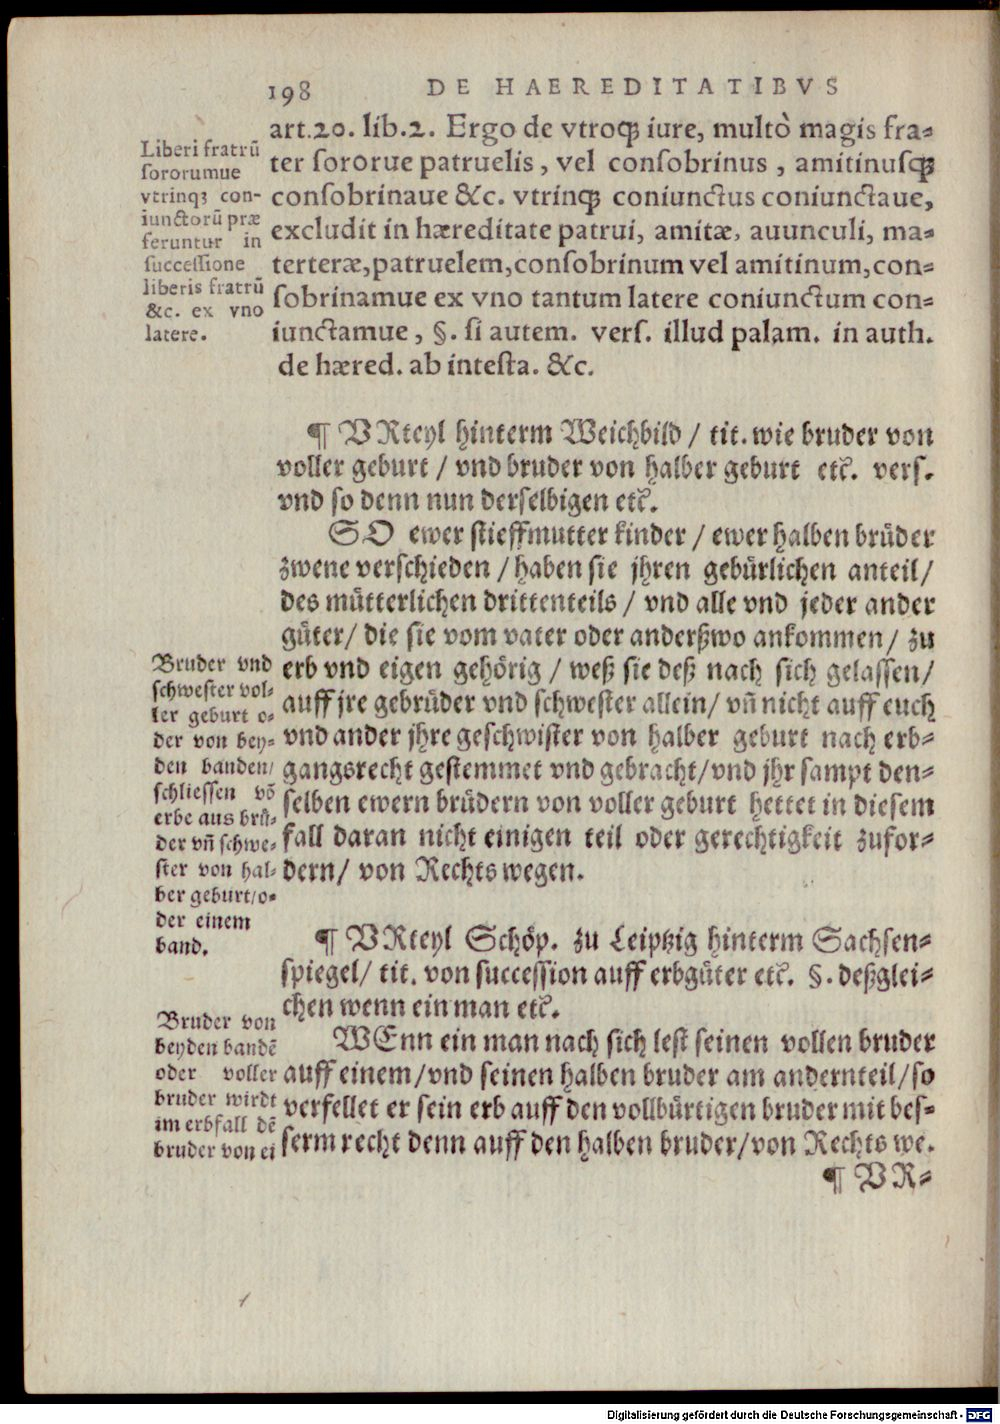 198 DE HAEREDITATIBVS
art.20. lib.2. Ergo de vtroqꝫ iure, multò magis fra-
ter sororue patruelis, vel consobrinus, amitinusqꝫ
consobrinaue &c. vtrinqꝫ coniunctus coniunctaue,
excludit in hæreditate patrui, amitæ, auunculi, ma-
terteræ, patruelem, consobrinum vel amitinum, con-
sobrinamue ex vno tantum latere coniunctum con-
iunctamue, §. si autem. vers. illud palam. in auth.
de hæred. ab intesta. &c.
Liberi fratrū
sororumue
vtrinqꝫ con-
iunctorū præ
feruntur in
successione
liberis fratrū
&c. ex vno
latere.
¶ VRteyl hinterm Weichbild / tit. wie bruder von
voller geburt / vnd bruder von halber geburt etc. vers.
vnd so denn nun derselbigen etc.
SO ewer stieffmutter kinder / ewer halben brüder
zwene verschieden / haben sie jhren gebürlichen anteil /
des mütterlichen drittenteils / vnd alle vnd jeder ander
güter / die sie vom vater oder anderßwo ankommen / zu
erb vnd eigen gehörig / weß sie deß nach sich gelassen /
auff jre gebrüder vnd schwester allein / vñ nicht auff euch
vnd ander jhre geschwister von halber geburt nach erb-
gangsrecht gestemmet vnd gebracht / vnd jhr sampt den-
selben ewern brüdern von voller geburt hettet in diesem
fall daran nicht einigen teil oder gerechtigkeit zufor-
dern / von Rechts wegen.
Bruder vnd
schwester vol-
ler geburt o-
der von bey-
den banden /
schliessen võ
erbe aus brü-
der vñ schwe-
ster von hal-
ber geburt / o-
der einem
band.
¶ VRteyl Schöp. zu Leiptzig hinterm Sachsen-
spiegel / tit. von succession auff erbgüter etc. §. deßglei-
chen wenn ein man etc.
WEnn ein man nach sich lest seinen vollen bruder
auff einem / vnd seinen halben bruder am andernteil / so
verfellet er sein erb auff den vollbürtigen bruder mit bes-
serm recht denn auff den halben bruder / von Rechts we.
Bruder von
beyden bandē
oder voller
bruder wirdt
im erbfall dē
bruder von ei
¶ VR-
Digitalisierung gefördert durch die Deutsche Forschungsgemeinschaft - DFG